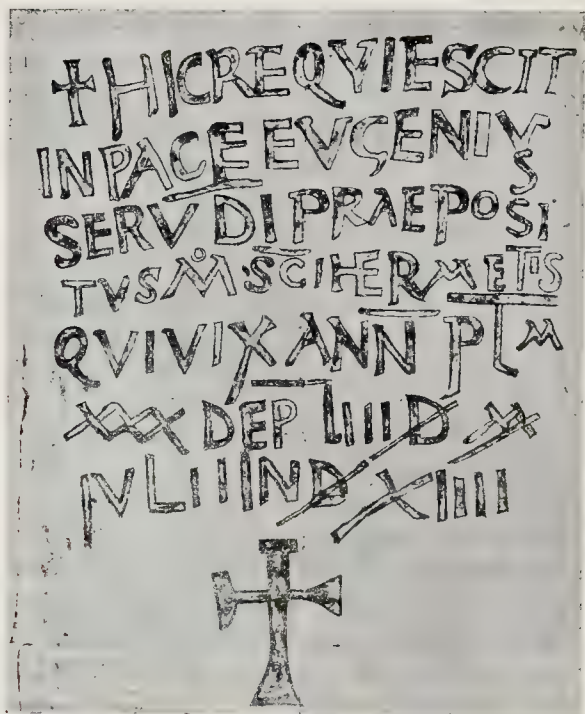 ✝ HIC REQVIESCIT
IN PACE EVGENIV
S
SERV DI PRAEPOSI
TVS Mº SCI HERMETIS
QVI VIX ANN PL M
XXX DEP
IVLII IND XIIII